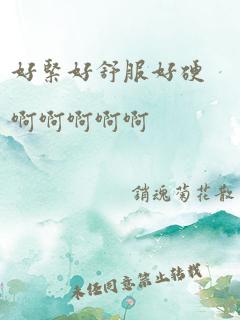 好紧好舒服好硬
啊啊啊啊啊
銷魂菊花散
未经同意禁止转载